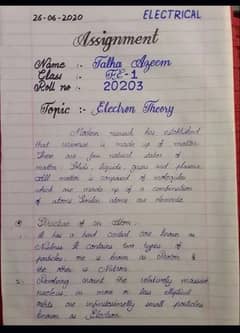 26-06-2020 ELECTRICAL
Assignment
Name :- Talha Azeem
Class :- FE-1
Roll no :- 20203
Topic :- Electron Theory
Modern research has established
that universe is made up of matter.
There are few natural states of
matter Solids, liquids, gases and plasma
All matter is composed of molecules
which are made up of a combination
of atoms
Structure of an Atom:-
It has a hard central core known as
Nucleus. It contains two types of
particles, one is known as Proton &
the other is Nutron.
Revolving around the relatively massive
nucleus, in more or less elliptical
orbits are infinitesimally small particles
known as Electron.